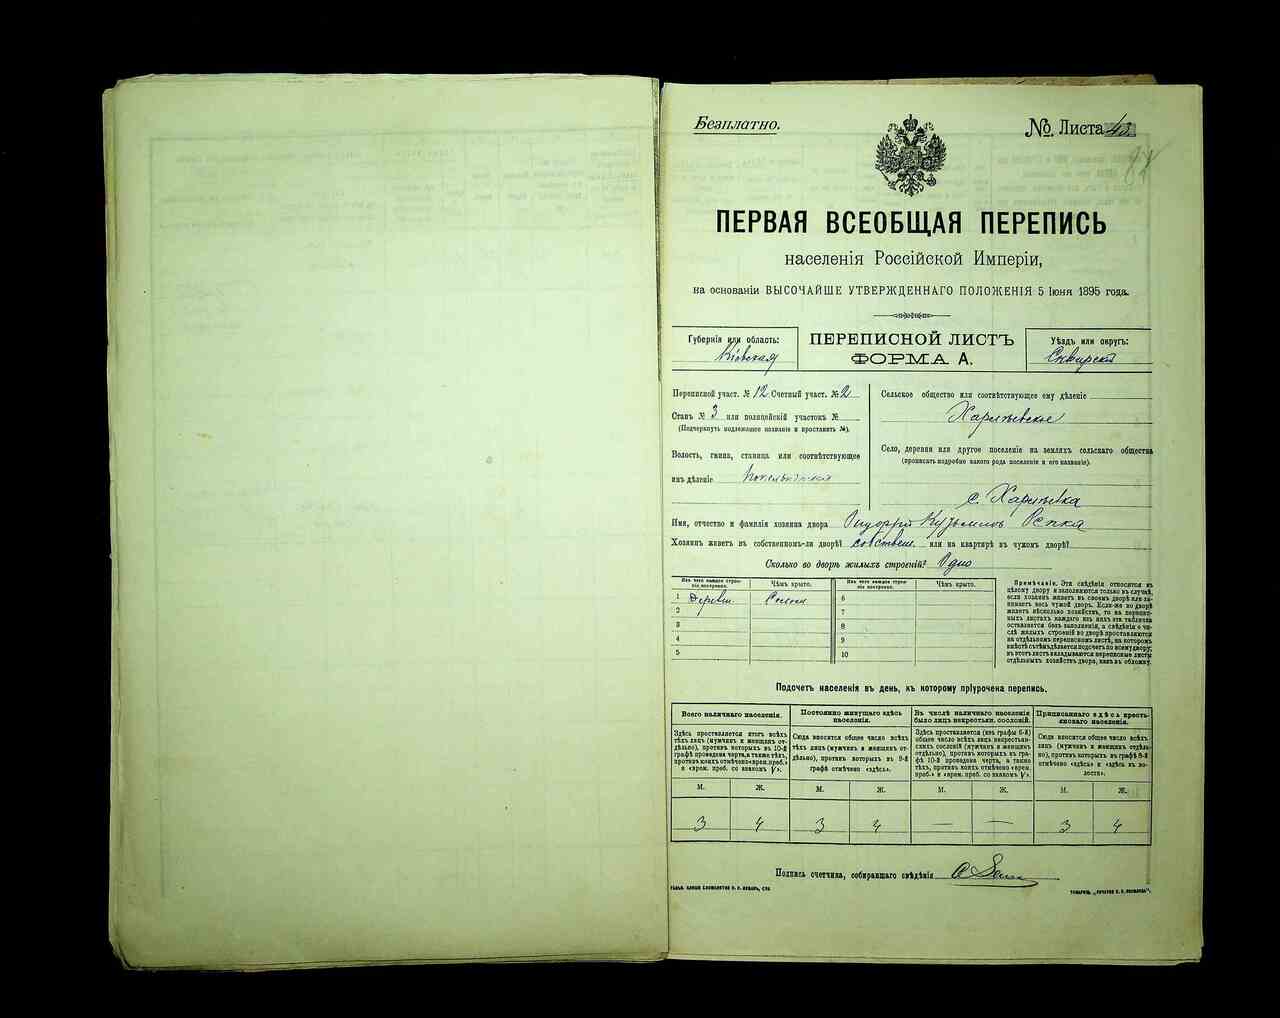 Безплатно.
№ Листа 43.
ПЕРВАЯ ВСЕОБЩАЯ ПЕРЕПИСЬ
населенія Россійской Имперіи,
на основаніи ВЫСОЧАЙШЕ УТВЕРЖДЕННАГО ПОЛОЖЕНІЯ 5 Іюня 1895 года.
Губернія или область:
Кіевская
ПЕРЕПИСНОЙ ЛИСТЪ
ФОРМА А.
Уѣздъ или округъ:
Сквирскій
Переписной участ. № 12 Счетный участ. № 2
Станъ № 3 или полицейскій участокъ №
(Подчеркнуть подлежащее названіе и проставить №).
Волость, гмина, станица или соотвѣтствующее
имъ дѣленіе
Сельское общество или соотвѣтствующее ему дѣленіе
Харлѣевское
Село, деревня или другое поселеніе на земляхъ сельскаго общества
(прописать подробно какого рода поселеніе и его названіе).
с. Харлѣевка
Имя, отчество и фамилія хозяина двора Кузьминъ Репка
Хозяинъ живетъ въ собственномъ-ли дворѣ? собствен. или на квартирѣ въ чужомъ дворѣ?
Сколько во дворѣ жилыхъ строеній? Одно
Изъ чего каждое строеніе построено.
Чѣмъ крыто.
Изъ чего каждое строеніе построено.
Чѣмъ крыто.
1 Деревян. Солом
2
3
4
5
6
7
8
9
10
Примѣчаніе. Эти свѣдѣнія относятся къ
цѣлому двору и заполняются только въ случаѣ,
если хозяинъ живетъ въ своемъ дворѣ или за-
нимаетъ весь чужой дворъ. Если-же во дворѣ
живетъ нѣсколько хозяйствъ, то на перепис-
ныхъ листахъ каждаго изъ нихъ эта табличка
оставляется безъ заполненія, а свѣдѣнія о чи-
слѣ жилыхъ строеній во дворѣ проставляются
на отдѣльномъ переписномъ листѣ, на которомъ
вмѣстѣ съ тѣмъ дѣлается подсчетъ по всему двору;
въ этотъ листъ вкладываются переписные листы
отдѣльныхъ хозяйствъ двора, какъ въ обложку.
Подсчетъ населенія въ день, къ которому пріурочена перепись.
Всего наличнаго населенія.
Здѣсь проставляется итогъ всѣхъ
тѣхъ лицъ (мужчинъ и женщинъ от-
дѣльно), противъ которыхъ въ 10-й
графѣ проведена черта, а также тѣхъ,
противъ коихъ отмѣчено «врем. преб.»
и «врем. преб. со знакомъ V».
Постоянно живущаго здѣсь
населенія.
Сюда вносится общее число всѣхъ
тѣхъ лицъ (мужчинъ и женщинъ от-
дѣльно), противъ которыхъ въ 9-й
графѣ отмѣчено «здѣсь».
Въ числѣ наличнаго населенія
было лицъ некрестьян. сословій.
Здѣсь проставляется (изъ графы 6-й)
общее число всѣхъ лицъ некрестьян-
скихъ сословій (мужчинъ и женщинъ
отдѣльно), противъ которыхъ въ гра-
фѣ 10-й проведена черта, а также
тѣхъ, противъ коихъ отмѣчено «врем.
преб.» и «врем. преб. со знакомъ V».
Приписаннаго здѣсь кресть-
янскаго населенія.
Сюда вносится общее число всѣхъ
лицъ (мужчинъ и женщинъ отдѣль-
но), противъ которыхъ въ графѣ 8-й
отмѣчено «здѣсь» и «здѣсь въ во-
лости».
М. Ж. М. Ж. М. Ж. М. Ж.
3 4 3 4 — — 3 4
Подпись счетчика, собиравшаго свѣдѣнія